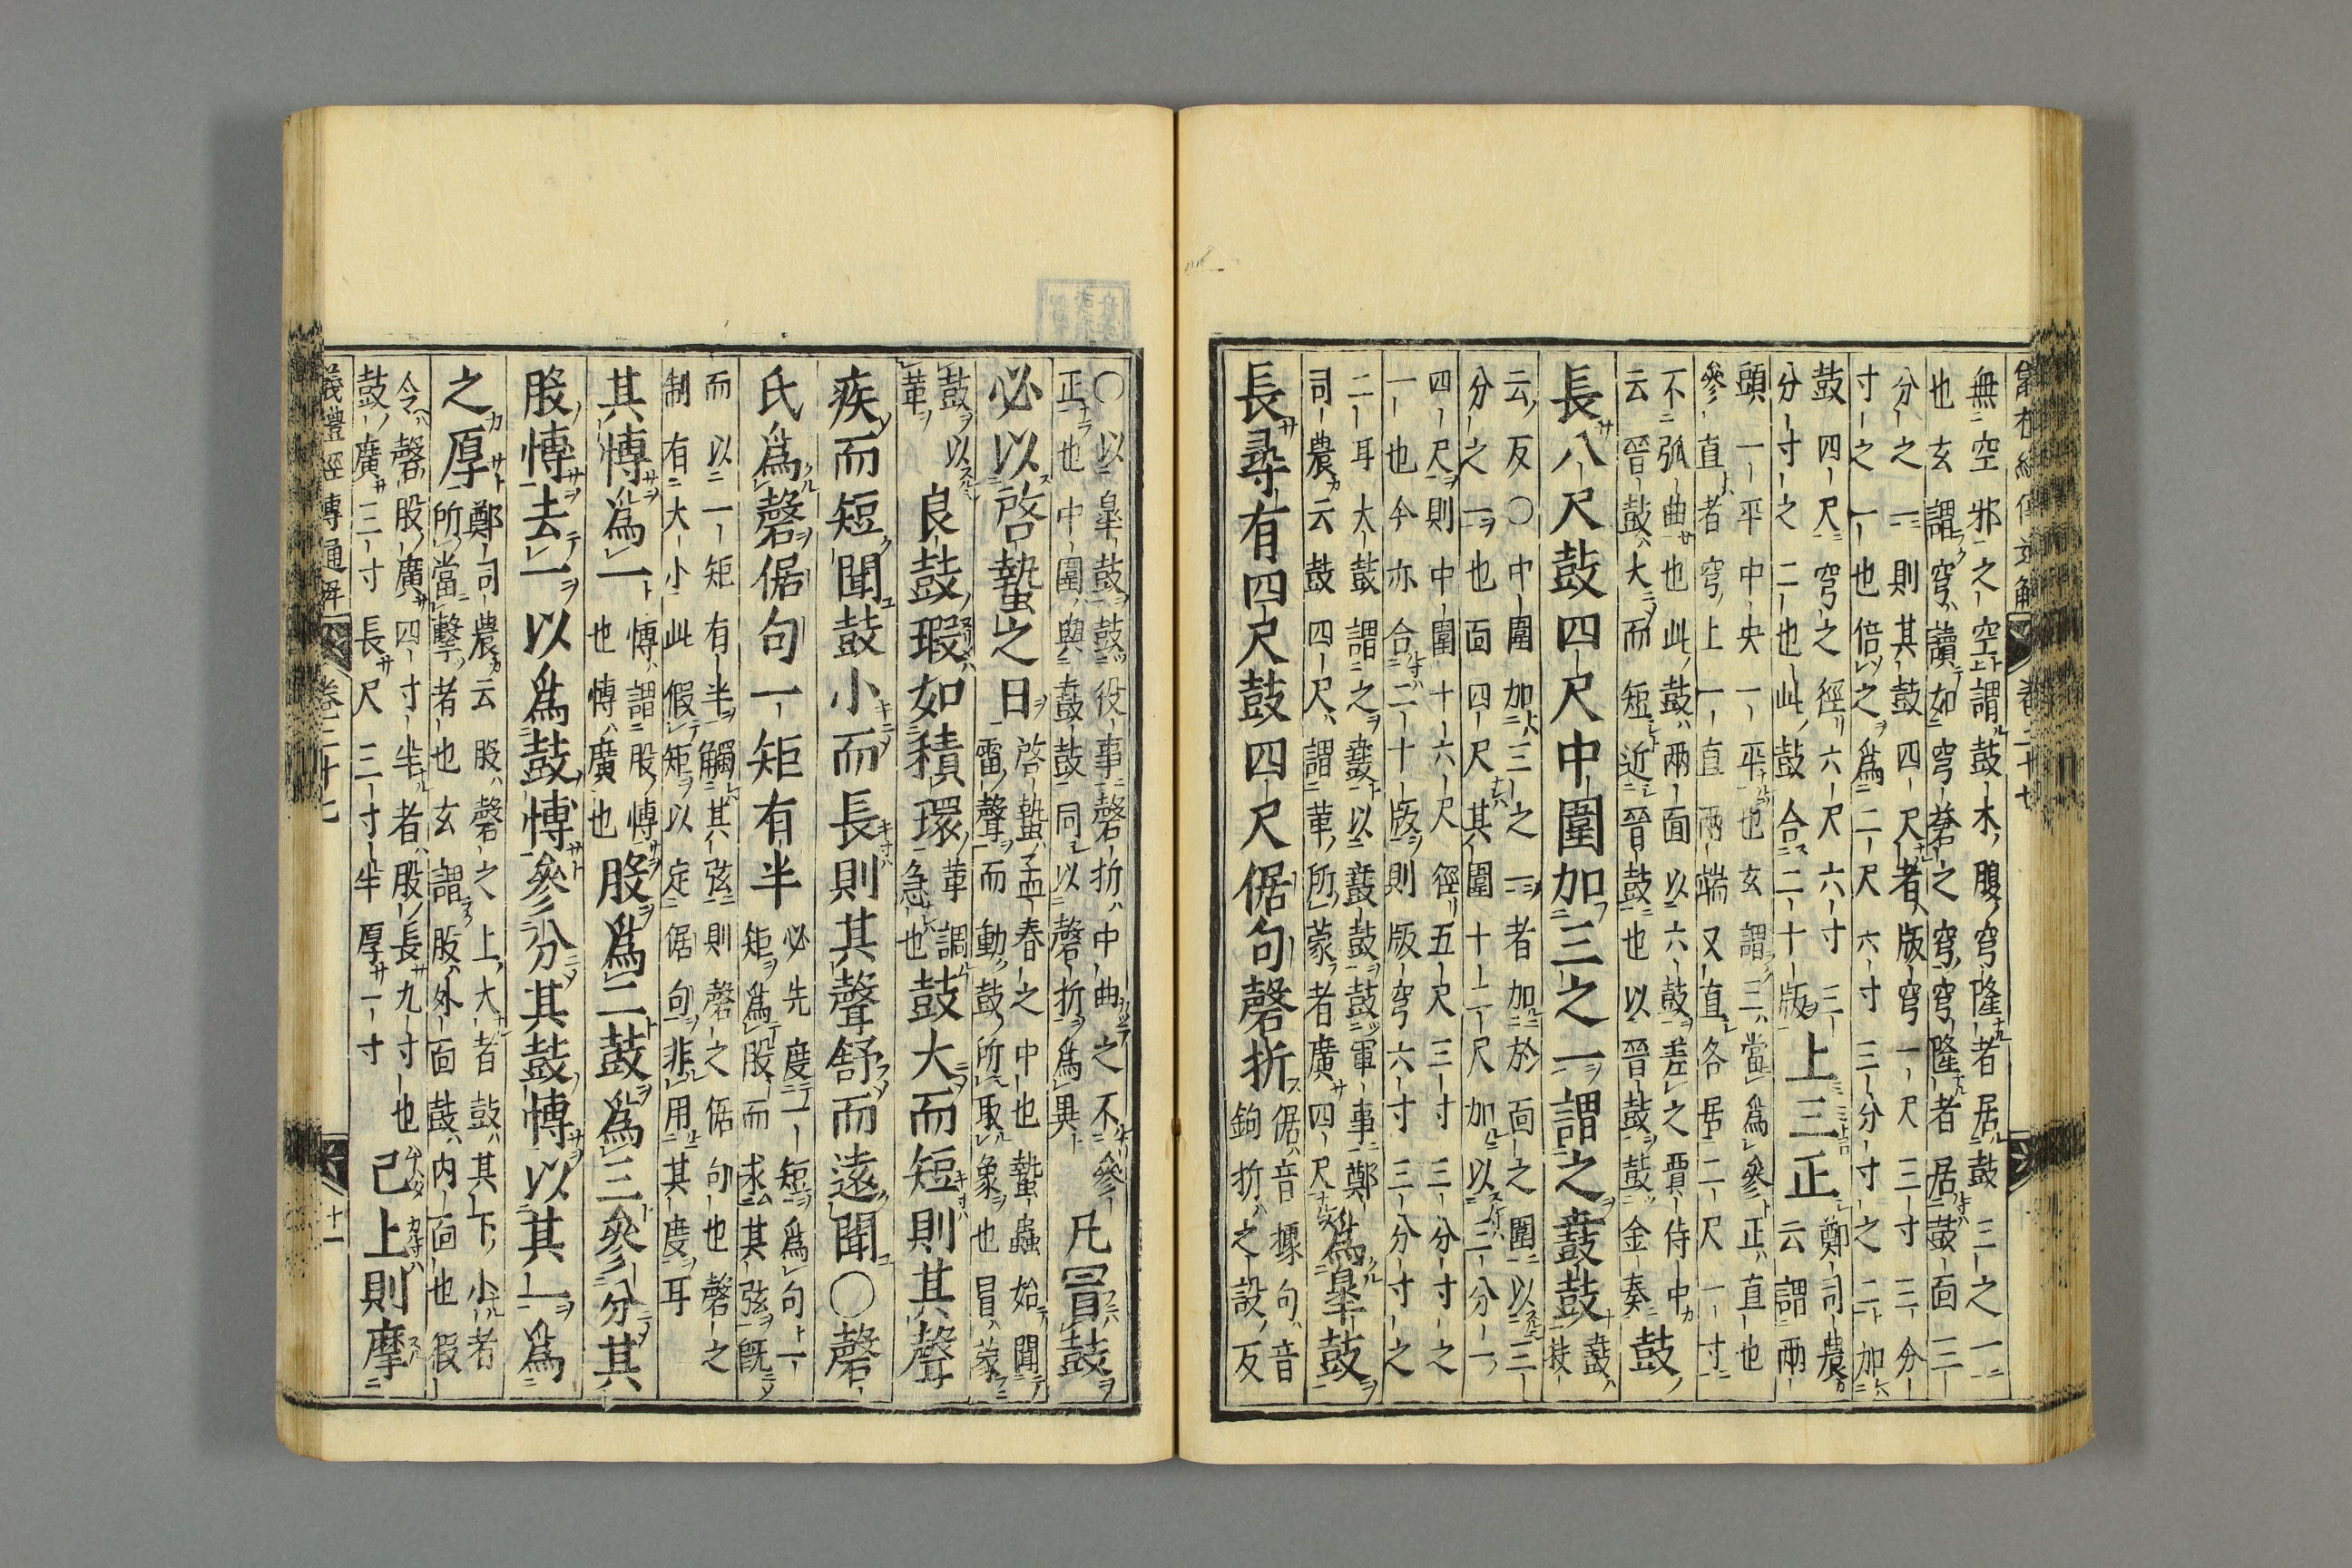 無空邪之空謂鼓木腹穹隆者居鼓三之一
也玄謂穹讀如穹蒼之穹穹隆者居鼓面三
分之一則其鼓四尺者版穹一尺三寸三分
寸之一也倍之爲二尺六寸三分寸之二加
鼓四尺穹之徑六尺六寸三
分寸之二也此鼓合二十版
上三正
鄭司農
云謂兩
頭一平中央一平也玄謂三當爲參正直也
參直者穹上一直兩端又直各居二尺一寸
不弧曲也此鼓兩面以六鼓差之賈侍中
云晉鼓大而短近晉鼓也以晉鼓鼓金奏
鼓
長八尺鼓四尺中圍加三之一謂之鼖鼓
鼖
扶
云反○中圍加三之一者加於面之圍以三
分之一也面四尺其圍十二尺加以三分一
四尺則中圍十六尺徑五尺三寸三分寸之
一也今亦合二十版則版穹六寸三分寸之
二耳大鼓謂之鼖以鼖鼓鼓軍事鄭
司農云鼓四尺謂革所蒙者廣四尺
爲皋鼓
長尋有四尺鼓四尺倨句磬折
倨音據句音
鉤折之設反
○以皋鼓鼓役事磬折中曲之不參
正也中圍與鼖鼓同以磬折爲異
凡冒鼓
必以啓蟄之日
啓蟄孟春之中也蟄蟲始聞
雷聲而動鼓所取象也冒蒙
鼓以
革
良鼓瑕如積環
革調
急也
鼓大而短則其聲
疾而短聞鼓小而長則其聲舒而遠聞○磬
氏爲磬倨句一矩有半
必先度一矩爲句一
矩爲股而求其弦既
而以一矩有半觸其弦則磬之倨句也磬之
制有大小此假矩以定倨句非用其度耳
其博爲一
博謂股博
也博廣也
股爲二鼓爲三參分其
股博去一以爲鼓博參分其鼓博以其一爲
之厚
鄭司農云股磬之上大者鼓其下小者
所當擊者也玄謂股外面鼓內面也假
令磬股廣四寸半者股長九寸也
鼓廣三寸長尺三寸半厚一寸
已上則摩
儀禮經傳通解 卷二十七 十一